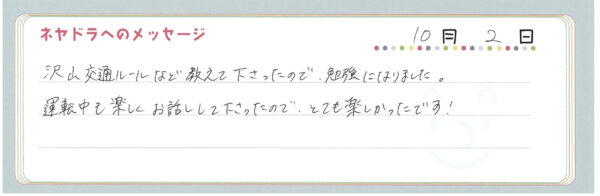 ネヤドラへのメッセージ
10月 2日
沢山交通ルールなど教えて下さったので、勉強になりました。
運転中も楽しくお話しして下さったので、とても楽しかったです!